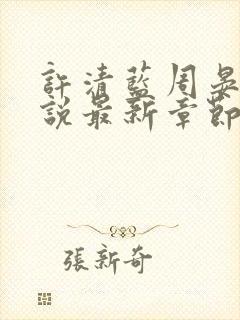 許清藍周晏
說最新章節
張新奇